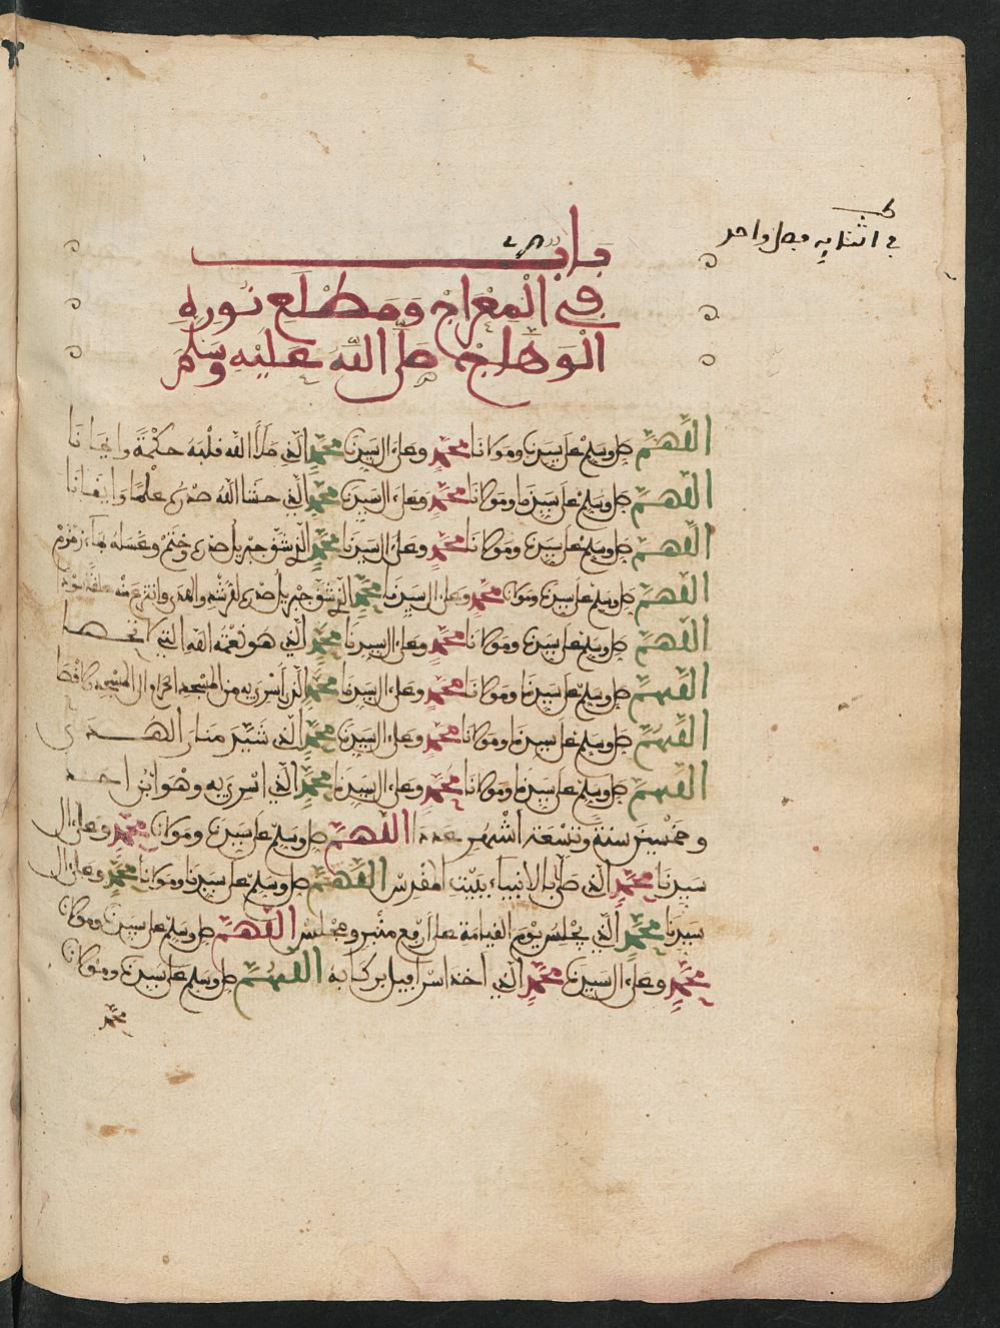 باب
في المعراج ومطلع نوره
الوهاج صلى الله عليه وسلم
في اثنايه فصل واحد
اللهم صل وسلم على سيدنا ومولانا محمد وعلى ءال سيدنا محمد الذي ملأ الله قلبه حكمة وايمانا
اللهم صل وسلم على سيدنا ومولانا محمد وعلى ءال سيدنا محمد الذي حشا الله صدره علما وايقانا
اللهم صل وسلم على سيدنا ومولانا محمد وعلى ءال سيدنا محمد الذي شق جبريل صدره وختم وغسله بماء زمزم
اللهم صل وسلم على سيدنا ومولانا محمد وعلى ءال سيدنا محمد الذي شق جبريل صدره وانتزع منه علقة
اللهم صل وسلم على سيدنا ومولانا محمد وعلى ءال سيدنا محمد الذي هو نعمة الله التي لا نحصا
اللهم صل وسلم على سيدنا ومولانا محمد وعلى ءال سيدنا محمد الذي أسري به من المسجد الحرام الى المسجد الاقصا
اللهم صل وسلم على سيدنا ومولانا محمد وعلى ءال سيدنا محمد الذي شيد منار الهدى
اللهم صل وسلم على سيدنا ومولانا محمد وعلى ءال سيدنا محمد الذي اسري به وهو ابن احد
وخمسين سنة وتسعة اشهر عددا اللهم صل وسلم على سيدنا ومولانا محمد وعلى ءال
سيدنا محمد الذي صلى بالانبياء ببيت المقدس اللهم صل وسلم على سيدنا ومولانا محمد وعلى ءال
سيدنا محمد الذي يجلس يوم القيامة على أرفع منبر ومجلس اللهم صل وسلم على سيدنا ومولانا
محمد وعلى ءال سيدنا محمد الذي أخذ اسرافيل بركابه اللهم صل وسلم على سيدنا ومولانا
محمد